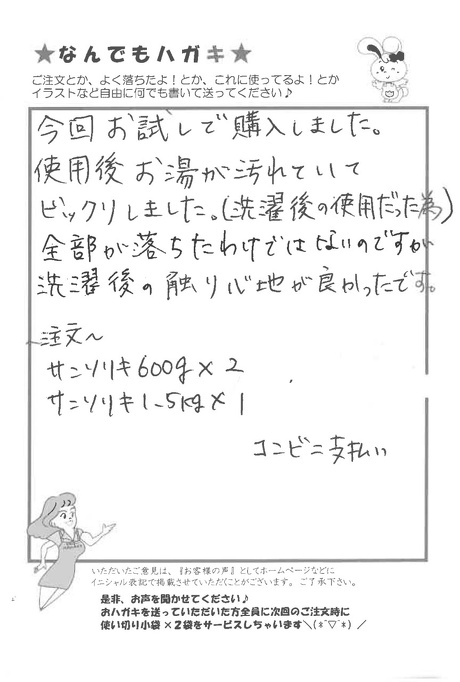 ★なんでもハガキ★
ご注文とか、よく落ちたよ！とか、これに使ってるよ！とか
イラストなど自由に何でも書いて送ってください♪
今回お試しで購入しました。
使用後お湯が汚れていて
ビックリしました。(洗濯後の使用だった為)
全部が落ちたわけではないのですが
洗濯後の触り心地が良かったです。
注文～
サンソリキ600g×2
サンソリキ1.5kg×1
コンビニ支払い
いただいたご意見は、『お客様の声』としてホームページなどに
イニシャル表記で掲載させていただくことがございます。ご了承下さい。
是非、お声を聞かせてください♪
おハガキを送っていただいた方全員に次回のご注文時に
使い切り小袋×2袋をサービスしちゃいます＼(*¯▽¯*)／